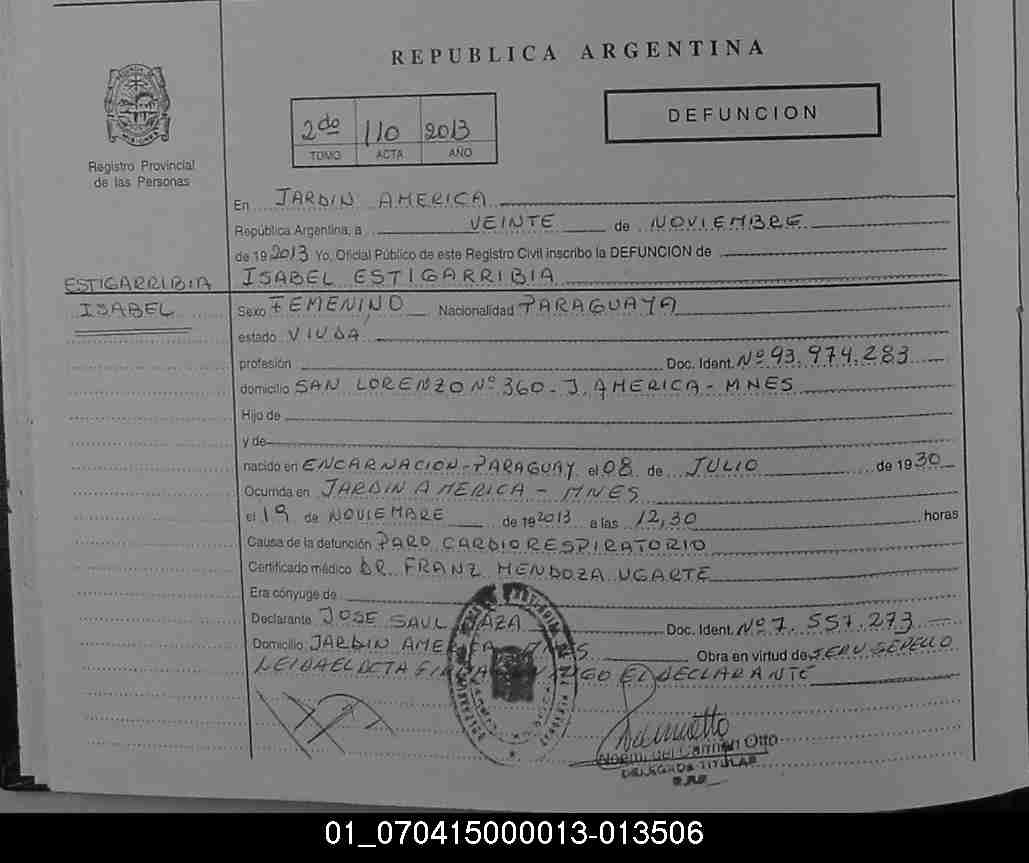 REPUBLICA ARGENTINA
DEFUNCION
2do 110 2013
TOMO ACTA AÑO
Registro Provincial
de las Personas
En JARDIN AMERICA
República Argentina, a VEINTE de NOVIEMBRE
de 19 2013 Yo, Oficial Público de este Registro Civil inscribo la DEFUNCION de
ISABEL ESTIGARRIBIA
ESTIGARRIBIA
ISABEL
Sexo FEMENINO Nacionalidad PARAGUAYA
estado VIUDA
profesión Doc. Ident. Nº 93.974.283
domicilio SAN LORENZO Nº 360 - J. AMERICA - MNES
Hijo de
y de
nacido en ENCARNACION - PARAGUAY el 08 de JULIO de 19 30
Ocurrida en JARDIN AMERICA - MNES
el 19 de NOVIEMBRE de 19 2013 a las 12,30 horas
Causa de la defunción PARO CARDIORESPIRATORIO
Certificado médico DR. FRANZ MENDOZA UGARTE
Era cónyuge de
Declarante JOSE SAUL Doc. Ident. Nº 7.557.273
Domicilio JARDIN AMERICA MNES Obra en virtud de SERV SEPELIO
LEIDA EL ACTA EL DECLARANTE
Noemi del Carmen Otto
DELEGADA TITULAR
01_070415000013-013506